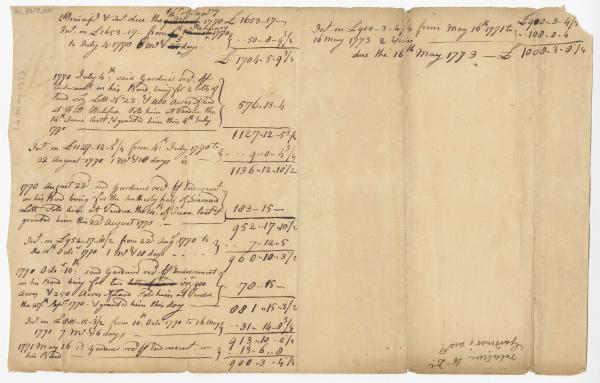 Principal & Int. due the 1770 £ 1653..17..
Int. on £1653..17 from
to July 4. 1770 .. 50..8..9 3/4
£ 1704..5..9 3/4
1770 July 4th. said Gardiner recd. Indorsment
on his Bond, being for 2 lotts of
Land viz. Lott No. 23. & 400 Acres of Land
at Fort Halifax Sold him at Vendue the 576..13..4
14th June last, & granted him this 4th July
1770
1127..12..5 3/4
Int. on £1127..12..5 3/4 from 4th. July 1770 to
22 August 1770 1 Mo. & 18 days is .. 9..0..4 3/4
1136..12..10 1/2
1770 August 22d. sd. Gardiner recd. Indorsement
on his Bond being for the southerly half of Diamond
Lott Sold him at Vendue the 14th. of June last & 183..15
granted him this 22d August 1770
952..17..10 1/2
Int. on £952..17..10 1/2 from 22d Augt. 1770 to
the 10th Octr. 1770 1 Mo & 18 days .. 7..12..5
960..10..3 1/2
1770 Octr. 10th. said Gardiner recd. Indorsement
on his Bond being for two viz. 900
Acres & 250 Acres of Land Sold him at Vendue 78..15
the 27th Sept. 1770. & granted him this day
881..15..3 1/2
Int. on £881..15..3 1/2 from 10th. Octr. 1770 to 16 May
1771 7 Mo. & 6 days .. 31..14..8 3/4
913..10..0 1/4
1771 May 16 sd Gardiner recd Indorsement
his Bond .. 13..6..8
900..3..4 1/4
Int. on £900..3..4 1/4 from May 16th 1771 to £900..3..4 1/4
16 May 1773 2 years .. 108..0..4
due the 16th May 1773 £ 1008..3..8 1/4
6 May 1773
Gardiners